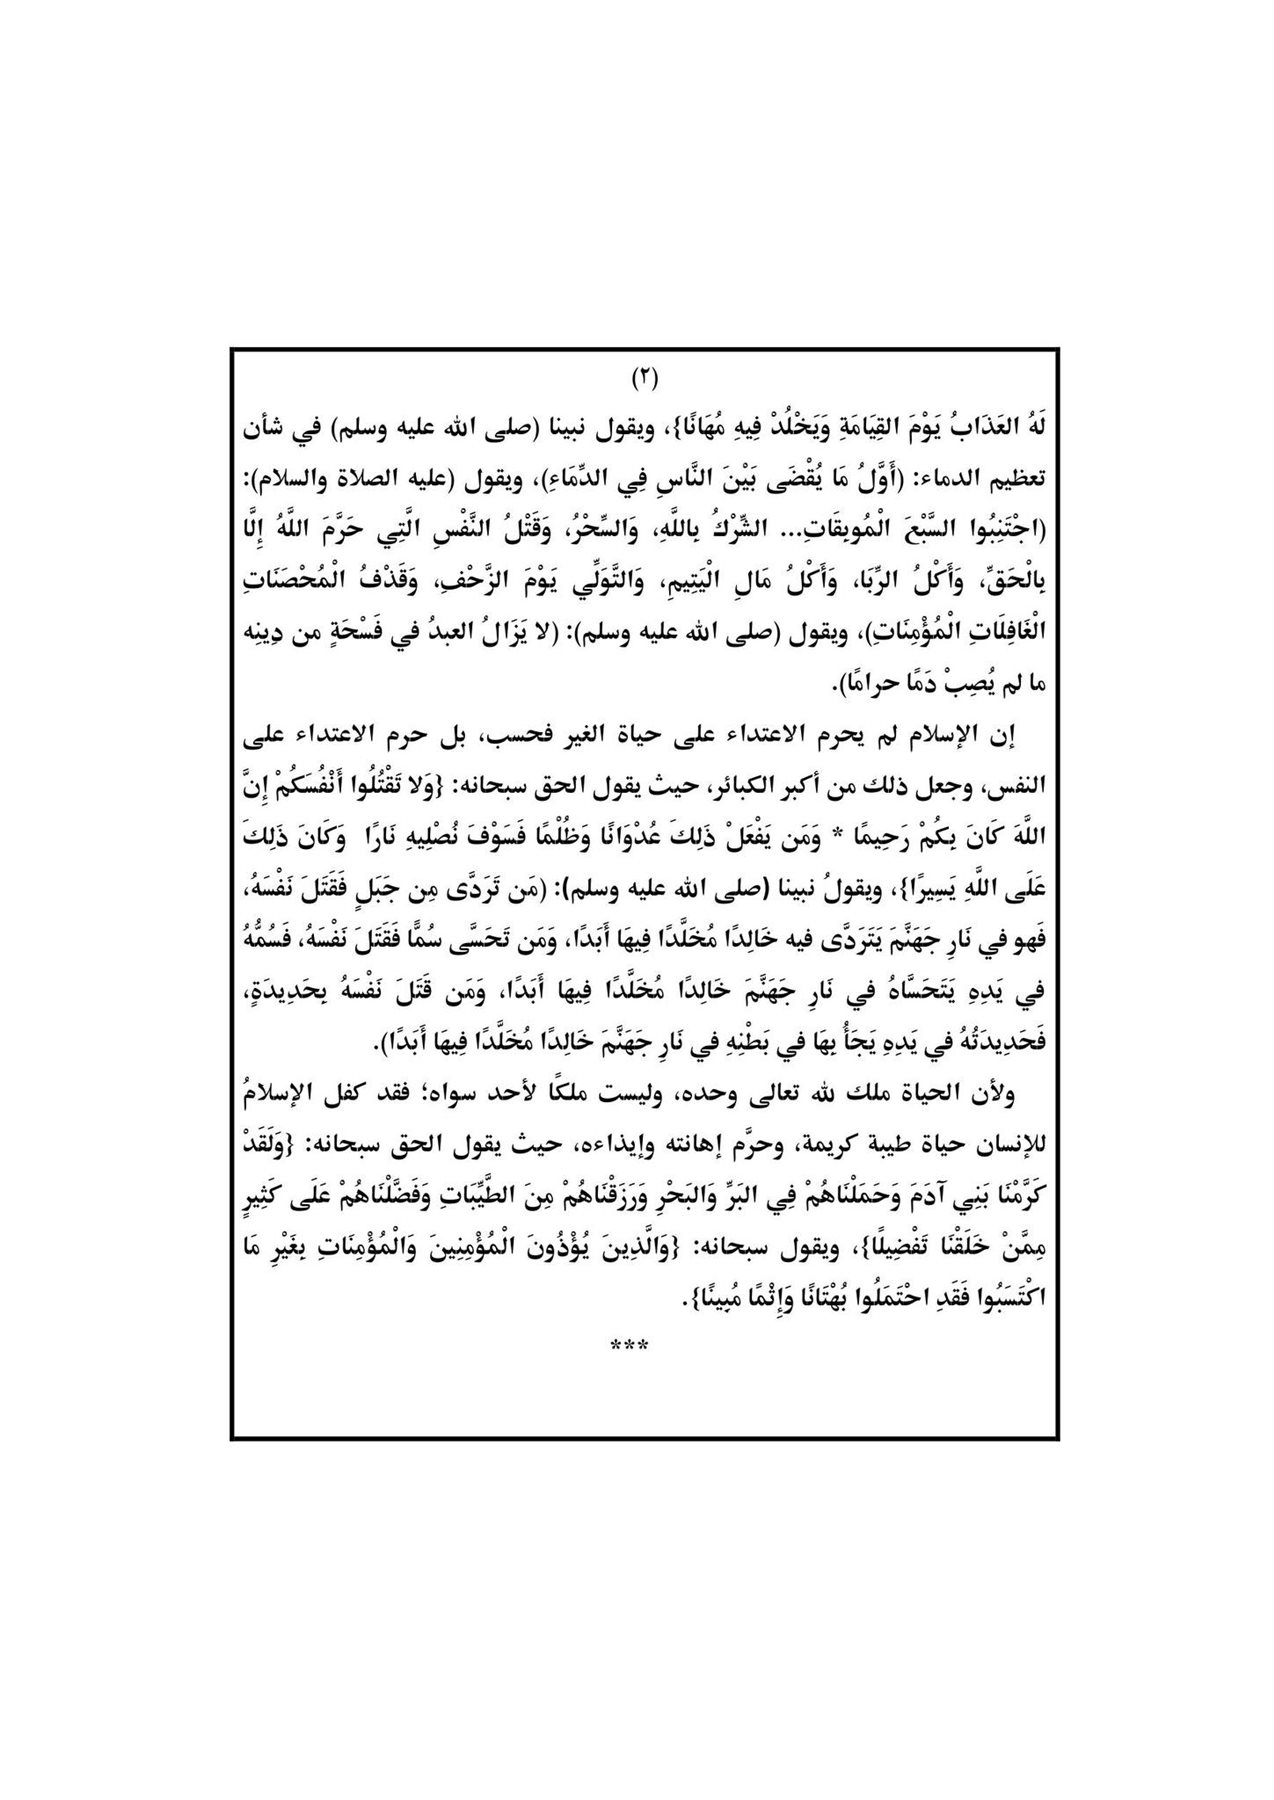 (٢)
لَهُ العَذَابُ يَوْمَ القِيَامَةِ وَيَخْلُدْ فِيهِ مُهَانًا}، ويقول نبينا (صلى الله عليه وسلم) في شأن
تعظيم الدماء: (أَوَّلُ مَا يُقْضَى بَيْنَ النَّاسِ فِي الدِّمَاءِ)، ويقول (عليه الصلاة والسلام):
(اجْتَنِبُوا السَّبْعَ الْمُوبِقَاتِ... الشِّرْكُ بِاللَّهِ، وَالسِّحْرُ، وَقَتْلُ النَّفْسِ الَّتِي حَرَّمَ اللَّهُ إِلَّا
بِالْحَقِّ، وَأَكْلُ الرِّبَا، وَأَكْلُ مَالِ الْيَتِيمِ، وَالتَّوَلِّي يَوْمَ الزَّحْفِ، وَقَذْفُ الْمُحْصَنَاتِ
الْغَافِلَاتِ الْمُؤْمِنَاتِ)، ويقول (صلى الله عليه وسلم): (لا يَزَالُ العبدُ في فَسْحَةٍ من دِينِه
ما لم يُصِبْ دَمًا حرامًا).
إن الإسلام لم يحرم الاعتداء على حياة الغير فحسب، بل حرم الاعتداء على
النفس، وجعل ذلك من أكبر الكبائر، حيث يقول الحق سبحانه: {وَلا تَقْتُلُوا أَنْفُسَكُمْ إِنَّ
اللَّهَ كَانَ بِكُمْ رَحِيمًا * وَمَن يَفْعَلْ ذَلِكَ عُدْوَانًا وَظُلْمًا فَسَوْفَ نُصْلِيهِ نَارًا وَكَانَ ذَلِكَ
عَلَى اللَّهِ يَسِيرًا}، ويقولُ نبينا (صلى الله عليه وسلم): (مَن تَرَدَّى مِن جَبَلٍ فَقَتَلَ نَفْسَهُ،
فَهو في نَارِ جَهَنَّمَ يَتَرَدَّى فيه خَالِدًا مُخَلَّدًا فِيهَا أَبَدًا، وَمَن تَحَسَّى سُمًّا فَقَتَلَ نَفْسَهُ، فَسُمُّهُ
في يَدِهِ يَتَحَسَّاهُ في نَارِ جَهَنَّمَ خَالِدًا مُخَلَّدًا فِيهَا أَبَدًا، وَمَن قَتَلَ نَفْسَهُ بِحَدِيدَةٍ،
فَحَدِيدَتُهُ في يَدِهِ يَجَأُ بِهَا في بَطْنِهِ في نَارِ جَهَنَّمَ خَالِدًا مُخَلَّدًا فِيهَا أَبَدًا).
ولأن الحياة ملك لله تعالى وحده، وليست ملكًا لأحد سواه؛ فقد كفل الإسلامُ
للإنسان حياة طيبة كريمة، وحرَّم إهانته وإيذاءه، حيث يقول الحق سبحانه: {وَلَقَدْ
كَرَّمْنَا بَنِي آدَمَ وَحَمَلْنَاهُمْ فِي البَرِّ وَالبَحْرِ وَرَزَقْنَاهُمْ مِنَ الطَّيِّبَاتِ وَفَضَّلْنَاهُمْ عَلَى كَثِيرٍ
مِمَّنْ خَلَقْنَا تَفْضِيلًا}، ويقول سبحانه: {وَالَّذِينَ يُؤْذُونَ الْمُؤْمِنِينَ وَالْمُؤْمِنَاتِ بِغَيْرِ مَا
اكْتَسَبُوا فَقَدِ احْتَمَلُوا بُهْتَانًا وَإِثْمًا مُبِينًا}.
***